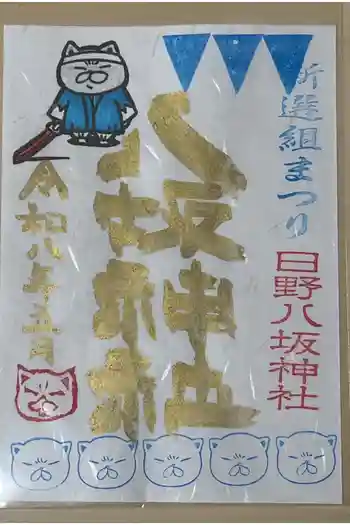 新選組まつり
日野八坂神社
八坂神社
令和八年五月